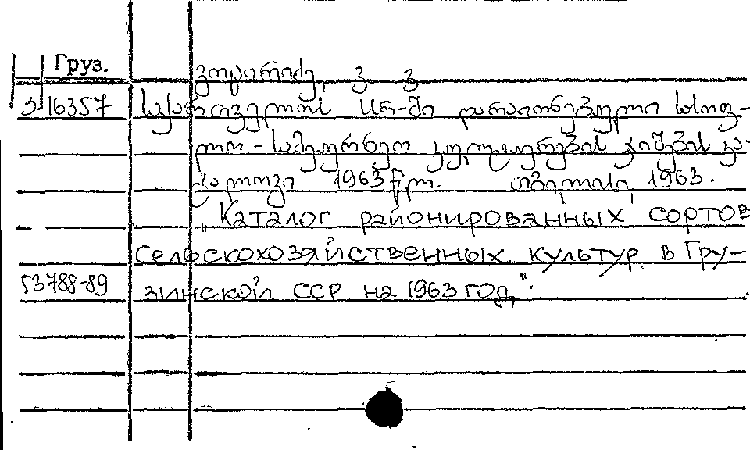 Груз.
გოცირიძე, ვ. ვ.
ვ16357 საქართველოს სსრ-ში დარაიონებული სასოფ-
ლო-სამეურნეო კულტურების ჯიშების კა-
ტალოგი 1963 წლ. თბილისი, 1963.
„Каталог районированных сортов
сельскохозяйственных культур в Гру-
53788-89 зинской ССР на 1963 год".